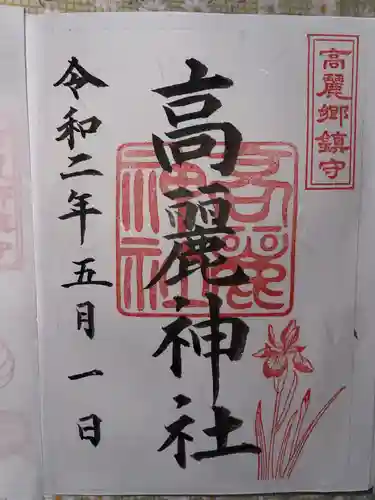 高麗郷鎮守
高麗神社
令和二年五月一日
高麗
神社